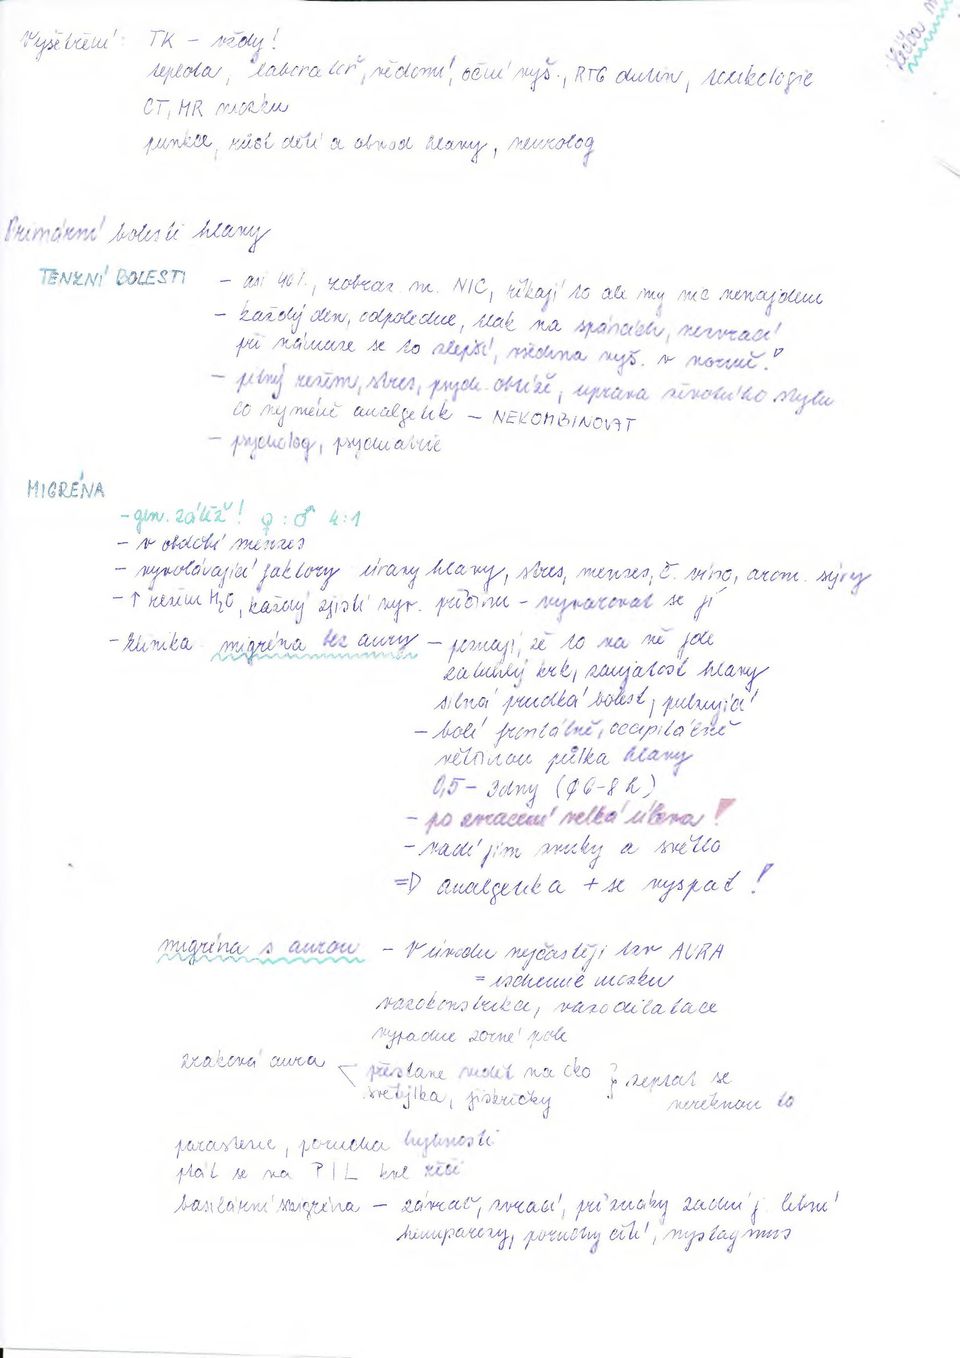 léčba
Vyšetření: TK – vždy!
teplota, laboratoř, vědomí, oční vyš., RTG dutin, toxikologie
CT, MR mozku
punkce, růst dětí a obvod hlavy, neurolog
Primární bolesti hlavy
TENZNÍ BOLESTI – asi 40%, zobraz. m. NIC, říkají to ale my nic nenajdeme
– každý den, odpoledne, tlak na spáncích, nezvrací
při námaze se to zlepší, všechna vyš. v normě!
– pitný režim, stres, psych. obtíže, úprava životního stylu
co nejméně analgetik – NEKOMBINOVAT
– psycholog, psychiatrie
MIGRÉNA
– gen. zátěž! ♀ : ♂ 4:1
– v období menzes
– vyvolávající faktory úrazy hlavy, stres, menzes, č. víno, arom. sýry
– ↑ režim H2O, každý zjistí vyv. příčinu – vyvarovat se jí
– klinika migréna bez aury – poznají, že to na ně jde
zatuhlý krk, zaujatost hlavy
silná prudká bolest, pulzující
– bolí frontálně, occipitálně
většinou půlka hlavy
0,5 – 3dny (∅ 6–8 h)
– po zvracení velká úleva!
– vadí jim zvuky a světlo
⇒ analgetika + se vyspat!
migréna s aurou – V úvodu nejčastěji tzv AURA
= ischemie mozku
vazokonstrikce, vazodilatace
výpadne zorné pole
zraková aura < přestane vidět na oko } zeptat se
světýlka, jiskřičky neřeknou to
parastezie, porucha hybnosti
ptát se na P | L kvě řeči
basilární migréna – závrať, zvrací, příznaky zadní j. lební
hemiparézy, poruchy čití, nystagmus